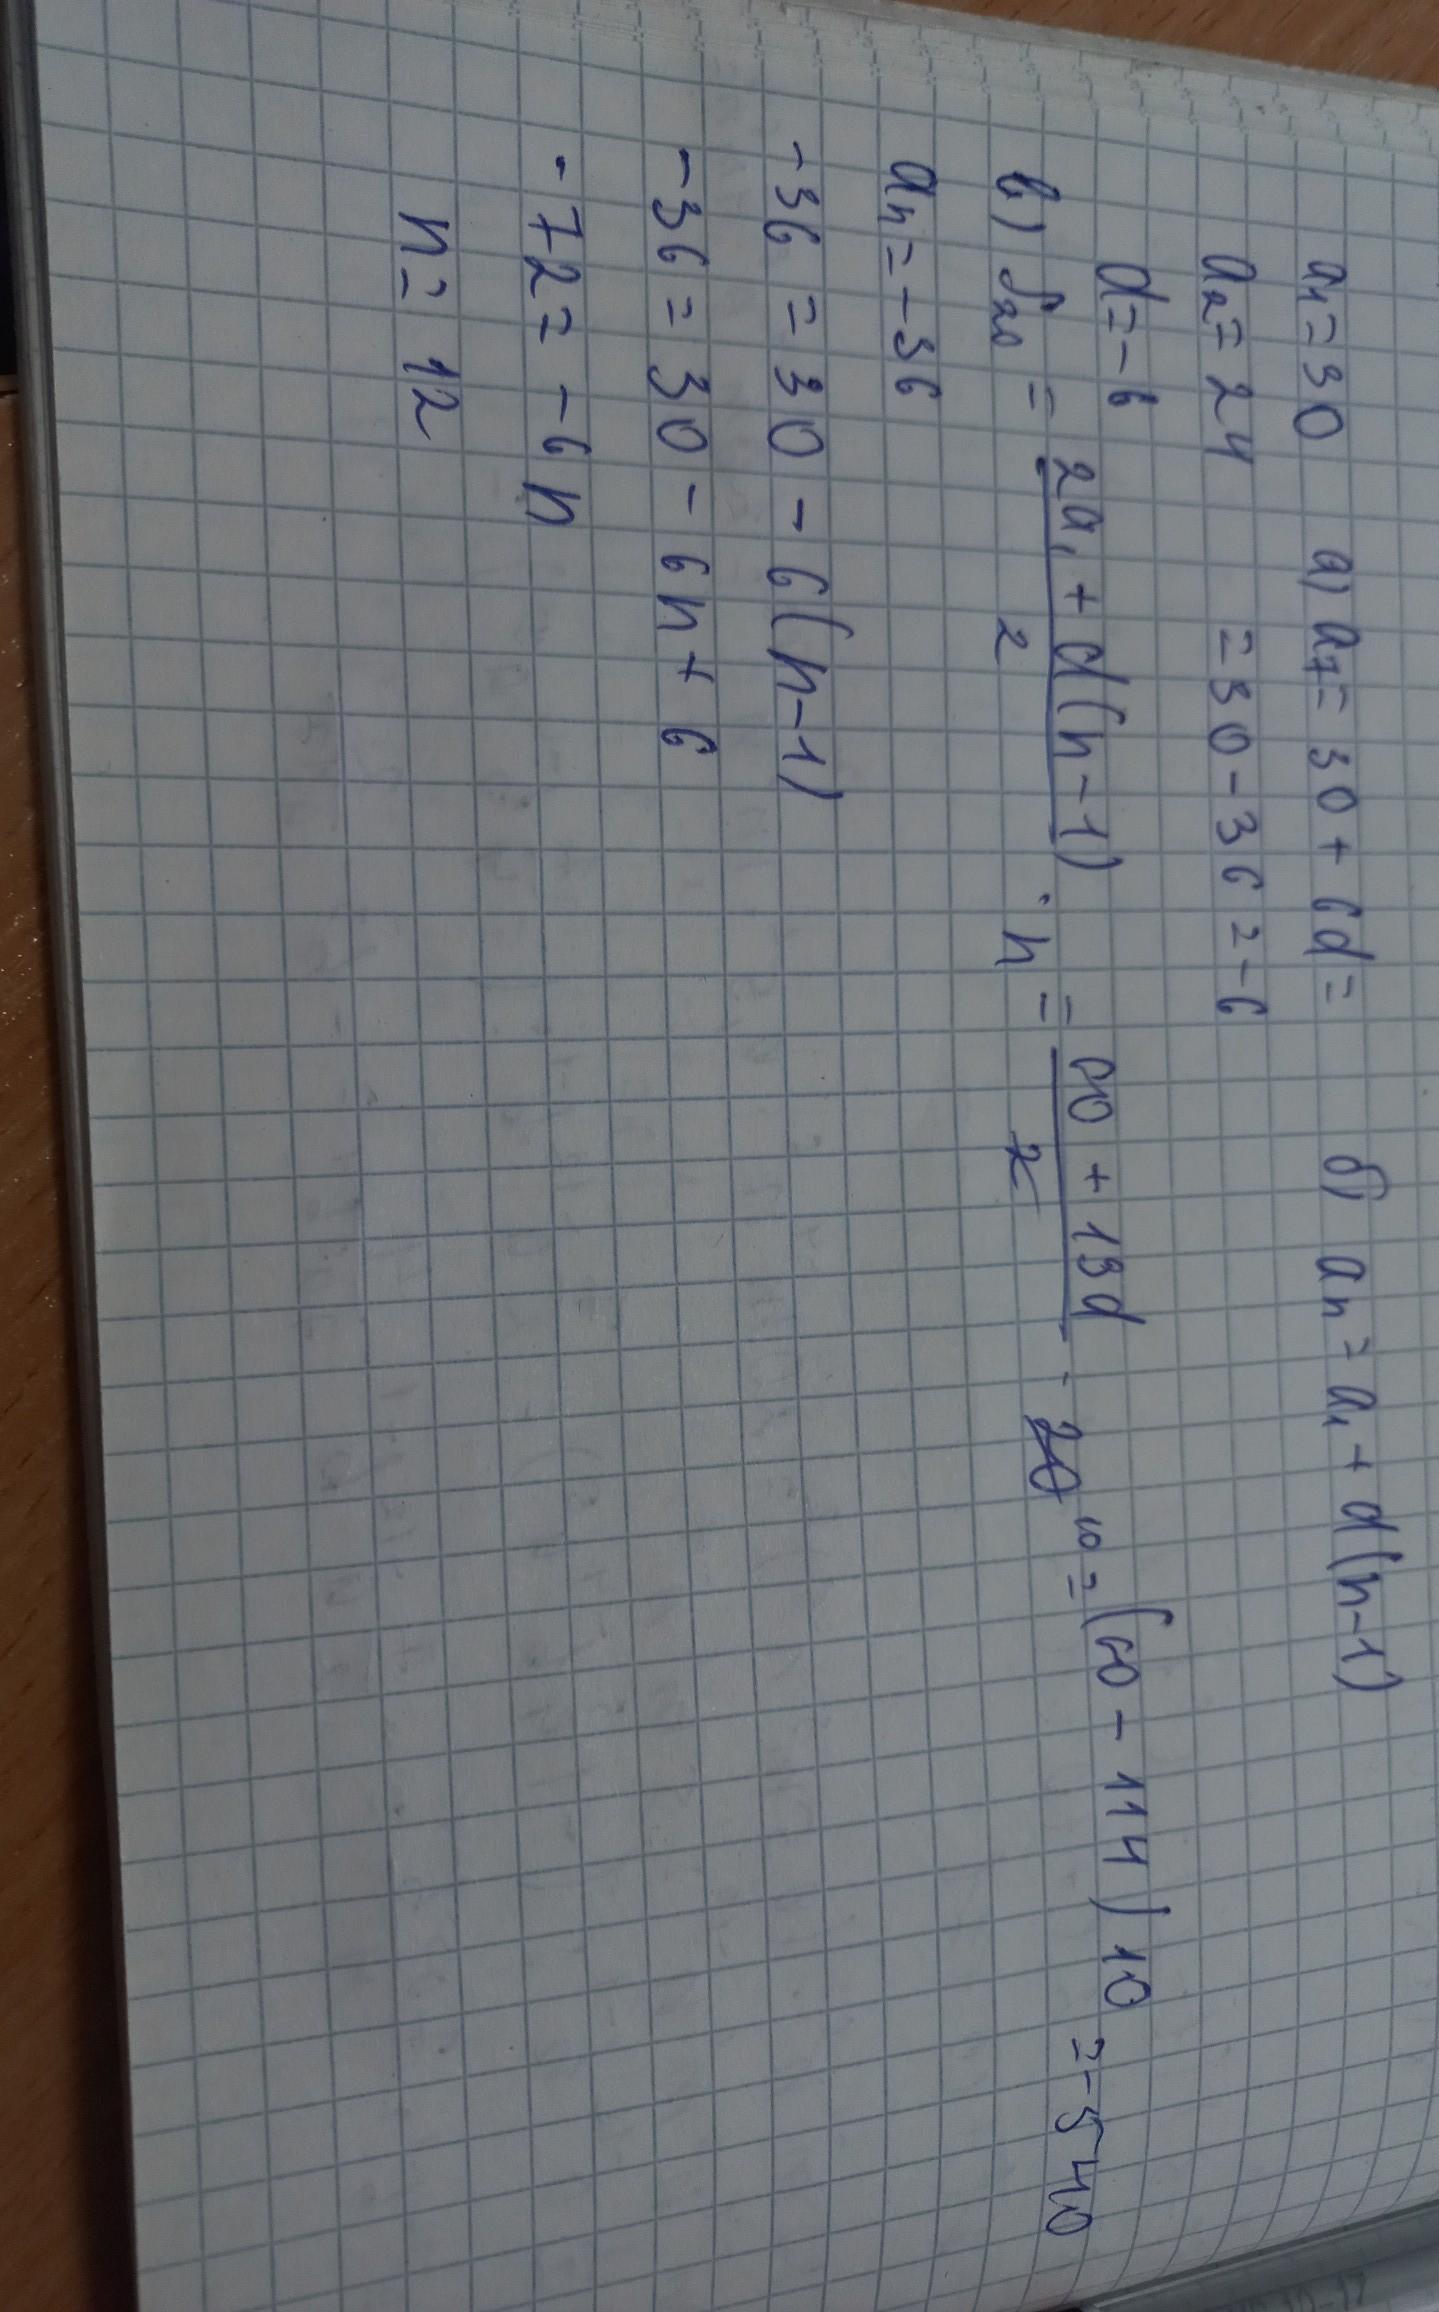 a₁ = 30 а) a₇ = 30 + 6d = б) aₙ = a₁ + d(n-1)
a₂ = 24 = 30 - 36 = -6
d = -6
в) S₂₀ = (2a₁ + d(n-1))/2 · n = (60 + 19d)/2 · 20 10 = (60 - 114) 10 = -540
aₙ = -36
-36 = 30 - 6(n-1)
-36 = 30 - 6n + 6
-72 = -6n
n = 12